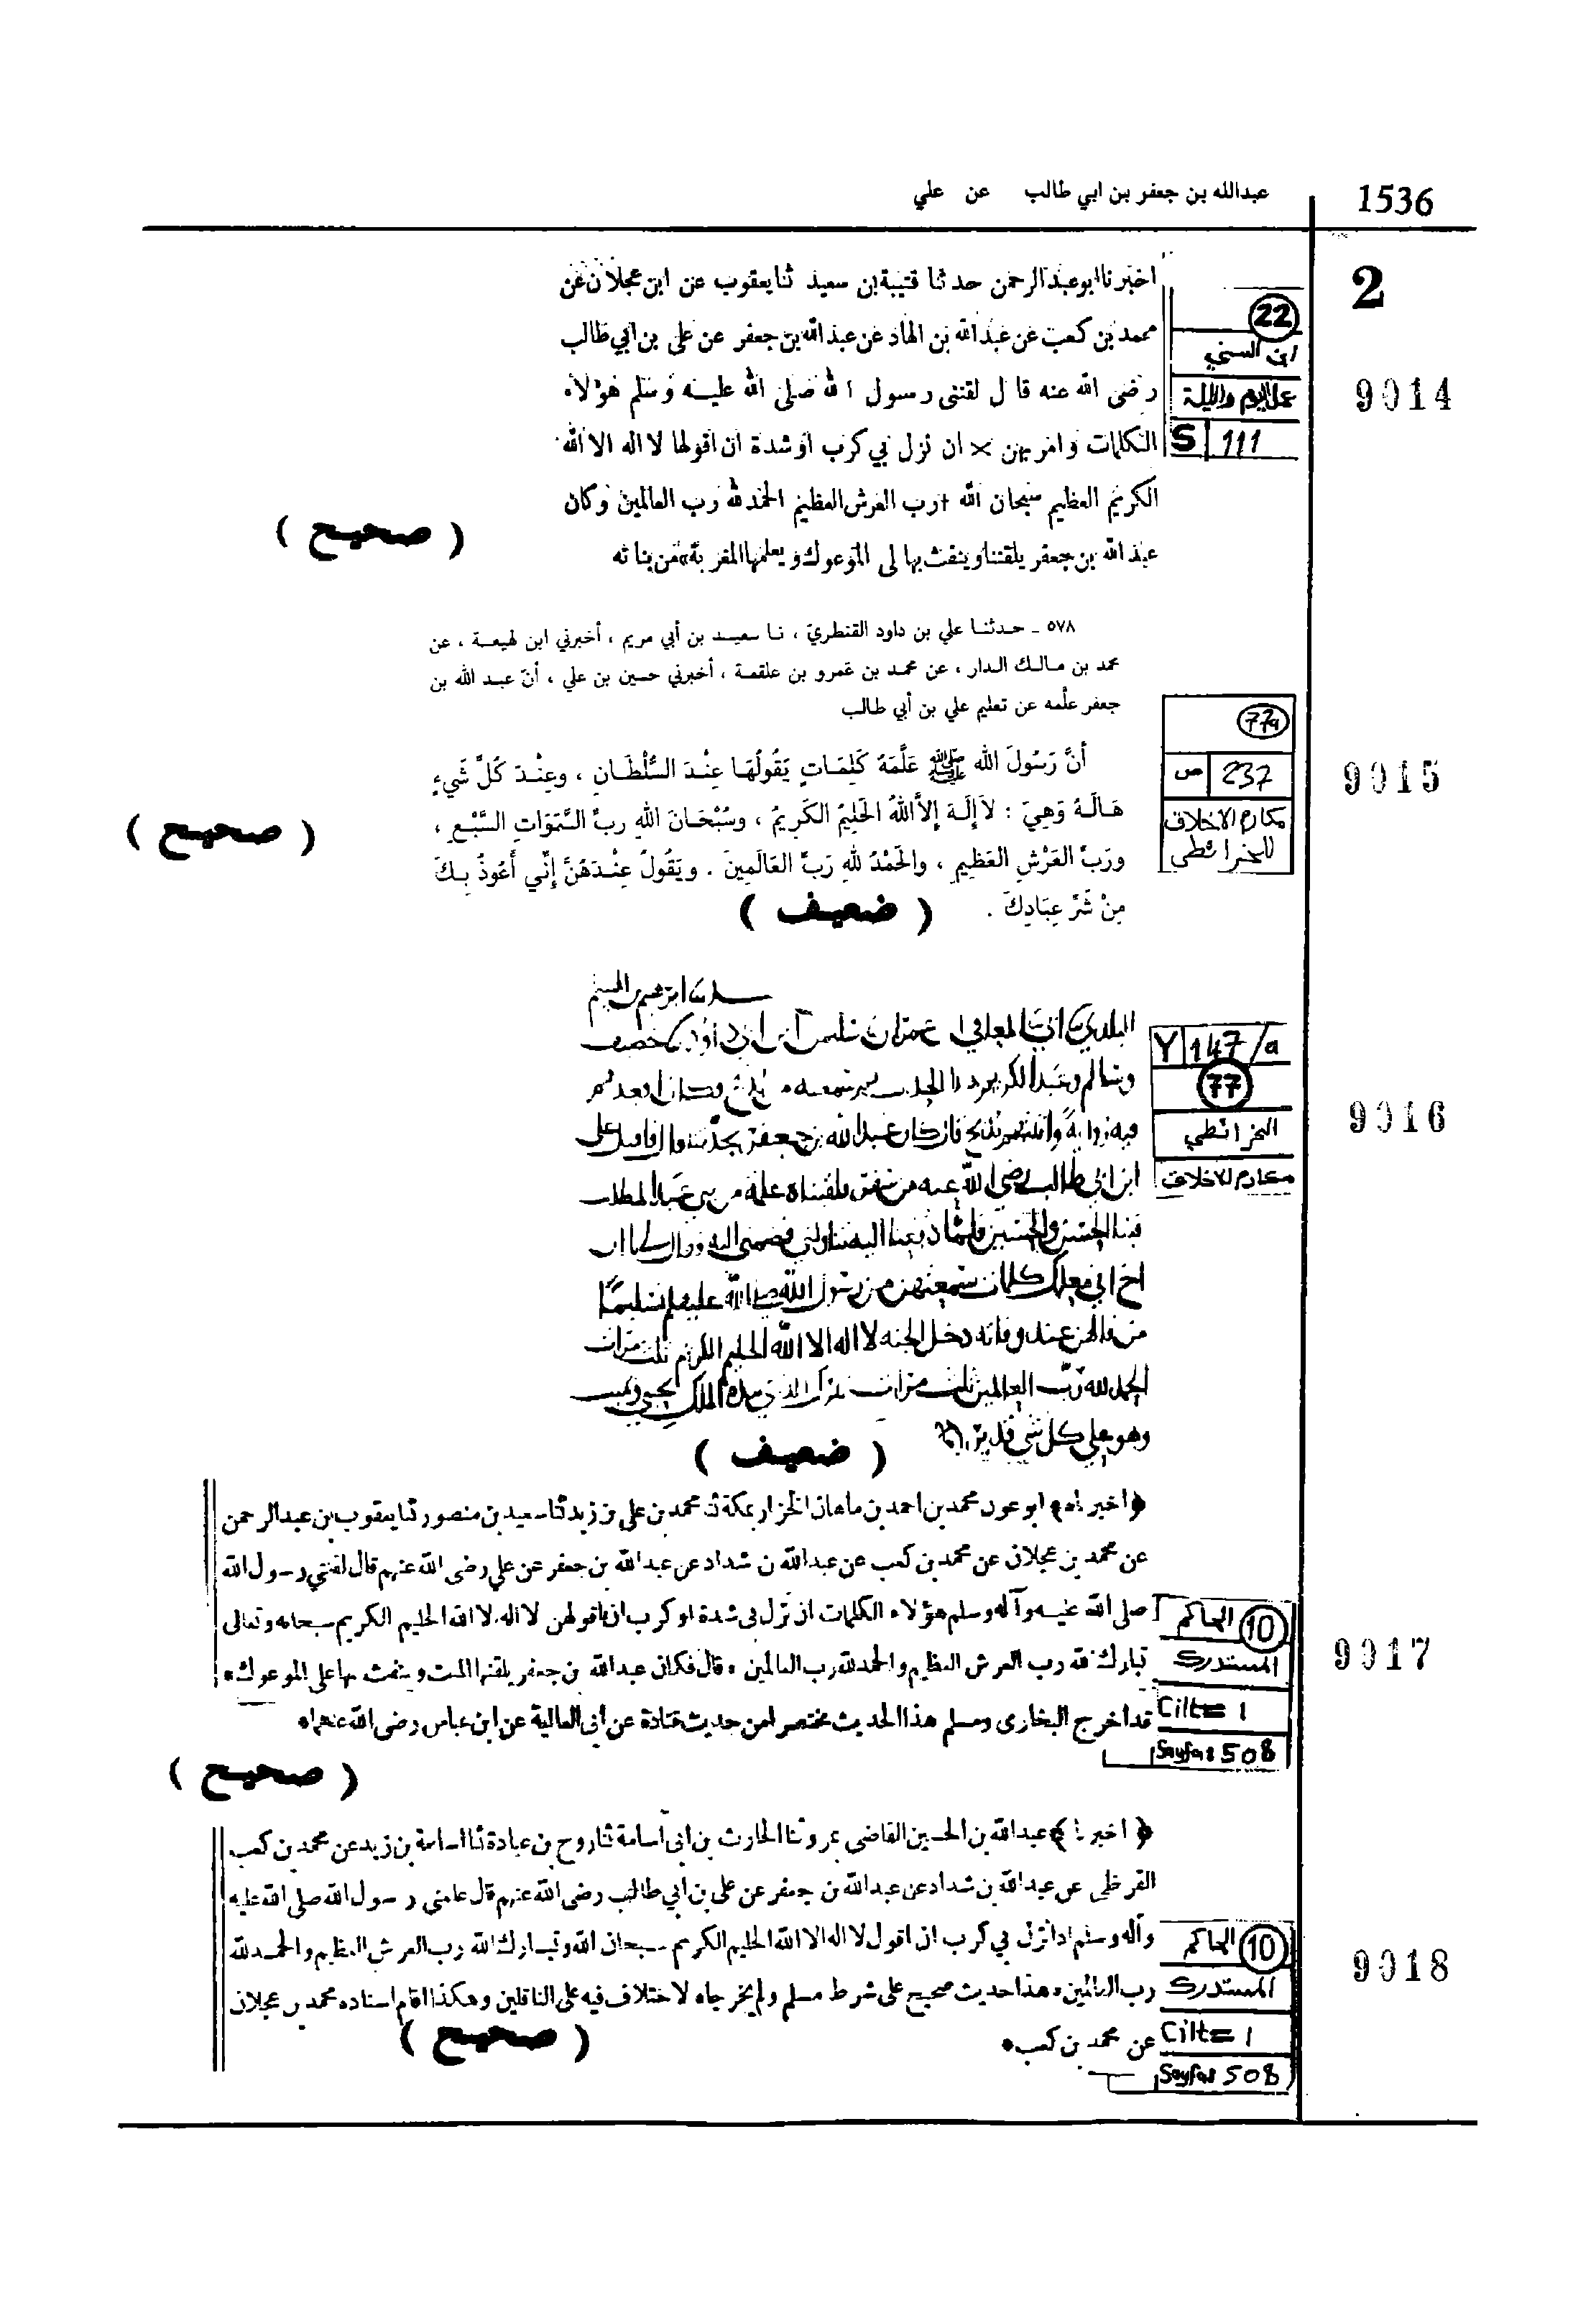 1536
عبدالله بن جعفر بن ابي طالب عن علي
2
9014
22
ابن السني
عمل اليوم والليلة
S 111
اخبرنا ابو عبد الرحمن حدثنا قتيبة بن سعيد ثنا يعقوب عن ابن عجلان عن
محمد بن كعب عن عبد الله بن الهاد عن عبد الله بن جعفر عن على بن ابي طالب
رضى الله عنه قال لقننى رسول الله صلى الله عليه وسلم هؤلاء
الكلمات وامر بهن × ان نزل بي كرب او شدة ان اقولها لا اله الا الله
الكريم العظيم سبحان الله + رب العرش العظيم الحمد لله رب العالمين وكان
عبد الله بن جعفر يلقننا وينفث بها لى الموعوك ويعلمها المغربة من بناته
( صحيح )
9015
77a
ص 237
مكارم الاخلاق
للخرائطي
٥٧٨ ـ حدثنا علي بن داود القنطري ، نا سعيد بن أبي مريم ، أخبرني ابن لهيعة ، عن
محمد بن مالك الدار ، عن محمد بن عمرو بن علقمة ، أخبرني حسين بن علي ، أن عبد الله بن
جعفر علمه عن تعليم علي بن أبي طالب
أَنَّ رَسُولَ الله ﷺ عَلَّمَهُ كَلِمَاتٍ يَقُولُهَا عِنْدَ السُّلْطَانِ ، وعِنْدَ كُلِّ شَيءٍ
هَالَهُ وَهِيَ : لاَ إِلَهَ إِلاَّ اللهُ الحَلِيمُ الكَرِيمُ ، وسُبْحَانَ اللهِ ربِّ السَّمَوَاتِ السَّبْعِ ،
ورَبِّ العَرْشِ العَظِيمِ ، والحَمْدُ للهِ رَبِّ العَالَمِينَ . ويَقُولُ عِنْدَهُنَّ إِنِّي أَعُوذُ بِكَ
مِنْ شَرِّ عِبَادِكَ .
( صحيح )
( ضعيف )
9016
Y 147/a
77
الخرائطي
مكارم الاخلاق
حدثنا ابرهيم بن الهيثم
البلدي المعافى بن عمران
وسالم وعبد الكريم
فيه زيادة كان عبد الله بن جعفر يحدثنا
ابن ابي طالب رضي الله عنه من بني عبد المطلب
فينا الحسن والحسين فلما فضمني اليه وقال لي يا ابن
اخ اني معلمك كلمات سمعتهن من رسول الله صلى الله عليه وسلم تسليما
من قالهن عند وفاته دخل الجنه لا اله الا الله الحليم الكريم ثلث مرات
الحمد لله رب العالمين ثلث مرات تبارك الذي بيده الملك يحيي ويميت
وهو على كل شي قدير
( ضعيف )
9017
10 الحاكم
المستدرك
Cilt= 1
Sayfa: 508
﴿ اخبرنا ﴾ ابو عون محمد بن احمد بن ماهان الخزاز بمكة ثنا محمد بن علي بن زيد ثنا سعيد بن منصور ثنا يعقوب بن عبد الرحمن
عن محمد بن عجلان عن محمد بن كعب عن عبد الله بن شداد عن عبد الله بن جعفر عن علي رضى الله عنهم قال لقننى رسول الله
صلى الله عليه وآله وسلم هؤلاء الكلمات ان نزل بى شدة او كرب ان اقولهن لا اله الا الله الحليم الكريم سبحانه وتعالى
تبارك الله رب العرش العظيم والحمد لله رب العالمين • قال فكان عبد الله بن جعفر يلقنها الميت وينفث بها على الموعوك •
قد اخرج البخارى ومسلم هذا الحديث مختصرا من حديث قتادة عن ابى العالية عن ابن عباس رضى الله عنهما •
( صحيح )
9018
10 الحاكم
المستدرك
Cilt= 1
Sayfa: 508
﴿ اخبرنا ﴾ عبد الله بن الحسين القاضى بمرو ثنا الحارث بن ابى اسامة ثنا روح بن عبادة ثنا اسامة بن زيد عن محمد بن كعب
القرظى عن عبد الله بن شداد عن عبد الله بن جعفر عن علي بن ابي طالب رضى الله عنهم قال علمنى رسول الله صلى الله عليه
وآله وسلم اذا نزل بي كرب ان اقول لا اله الا الله الحليم الكريم سبحان الله وتبارك الله رب العرش العظيم والحمد لله
رب العالمين • هذا حديث صحيح على شرط مسلم ولم يخرجاه لاختلاف فيه على الناقلين وهكذا اقام اسناده محمد بن عجلان
عن محمد بن كعب •
( صحيح )